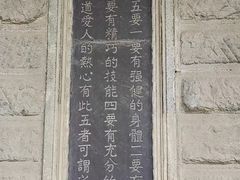 五要一要有强健的身體二要有
要有精巧的技能四要有充分
道愛人的熱心有此五者可謂